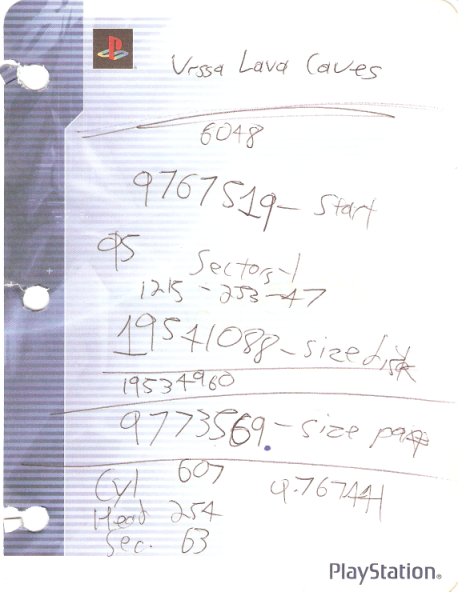 Vrssa Lava Caves
6048
9767519 - Start
95
Sectors-1
1215 - 253 - 47
19541088 - size disk
19534960
9773569 - size part
Cyl 607
4.76744
Head 254
Sec. 63
PlayStation®